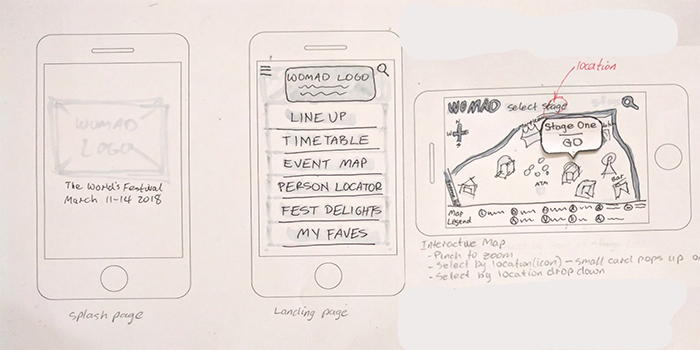 WOMAD
LOGO
The World's Festival
March 11-14 2018
Splash page
WOMAD LOGO
LINE UP
TIMETABLE
EVENT MAP
PERSON LOCATOR
FEST DELIGHTS
MY FAVES
Landing page
location
WOMAD select stage
Stage One
GO
ATM
Bar
Map
Legend
Interactive Map
- Pinch to zoom
- Select by location (icon) - small card pops up
- Select by location drop down